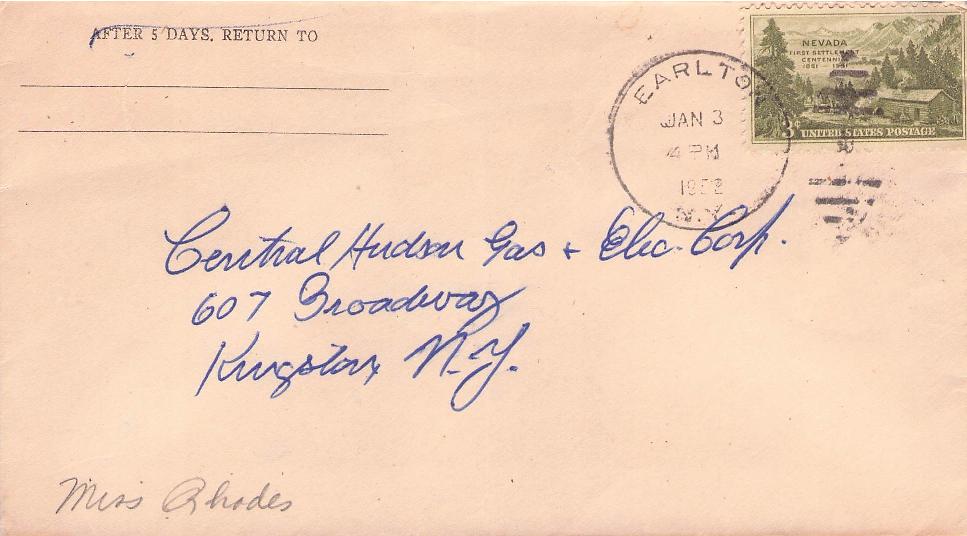 AFTER 5 DAYS, RETURN TO
NEVADA
FIRST SETTLEMENT
CENTENNIAL
1851 - 1951
3¢ UNITED STATES POSTAGE
EARLTON
JAN 3
4 PM
1952
N.Y.
Central Hudson Gas + Elec. Corp.
607 Broadway
Kingston, N.Y.
Miss Rhodes